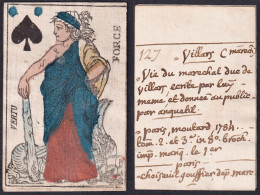 VERTU
FORCE
127 Villars (Maréch
Vie du marechal duc de
villars ecrite par luy
meme et donnée au public
par anquetil
paris, moutard 1784.
tom. 2. et 3. in 8° broch.
imp. manq. le 1er
paris
choiseul gouffier dep. mare